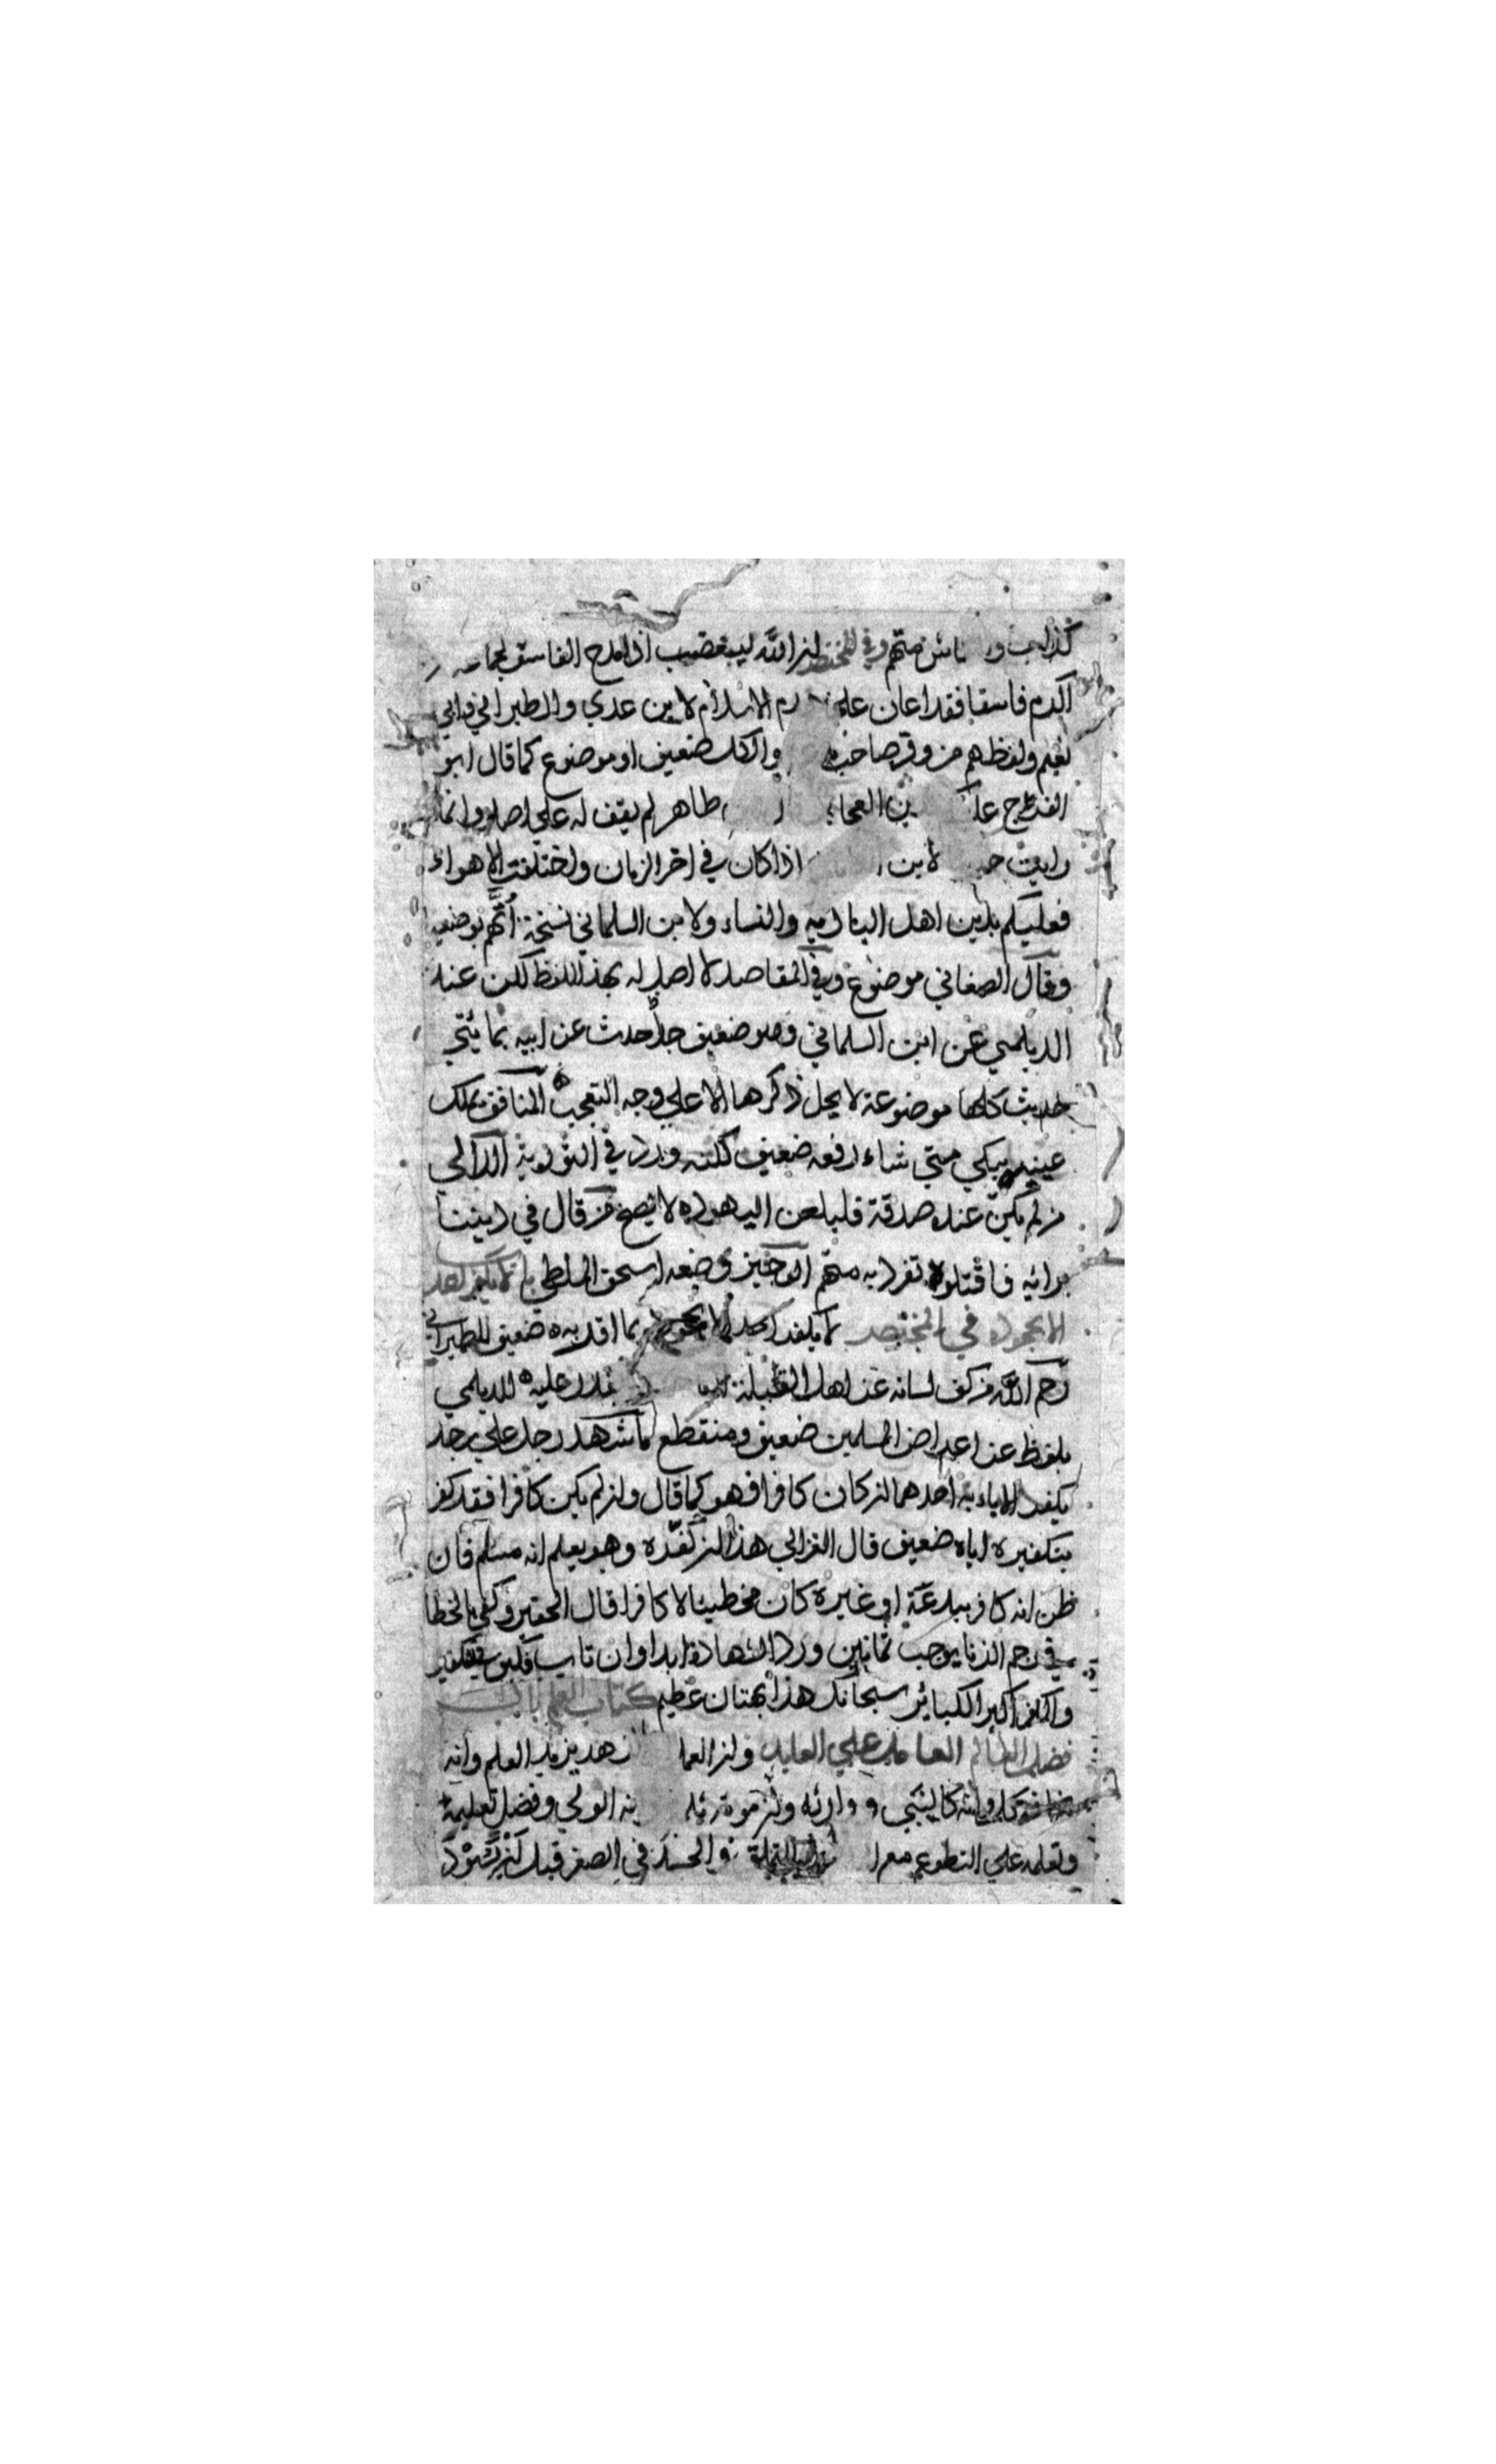 كذاب و ناس متهم وفي المختصر ان الله ليغضب اذا مدح الفاسق لجماعه
اكرم فاسقا فقد اعان على هدم الاسلام لابن عدي والطبراني وابي
نعيم ولفظهم من وقر صاحب والكل ضعيف او موضوع كما قال ابو
الفرج علي طاهر لم يقف له على اصل وانما
رايت لابن اذا كان في اخر الزمان واختلفت الاهواء
فعليكم بدين اهل البادية والنساء ولابن السلماني نسخة اتهم بوضعها
وقال الصغاني موضوع وفي المقاصد لا اصل له بهذا اللفظ لكن عند
الديلمي عن ابن السلماني وهو ضعيف جدا حدث عن ابيه بمائتي
حديث كلها موضوعة لا يحل ذكرها الا على وجه التعجب المنافق يملك
عينيه يبكي متى شاء رفعه ضعيف لكنه ورد في التورية الذالي
من لم يكن عنده صدقة فليلعن اليهود لا يصح من قال في ديننا
برائيه فاقتلوه تفرد به متهم الوجيز وضعه اسحق الملطي لا يكفر احد
الا بجحود في المختصر لا يكفر احد الا بجحود بما اقر به ضعيف للطبراني
رحم الله من كف لسانه عن اهل القبلة يقدر عليه للديلمي
بلفظ عن اعراض المسلمين ضعيف ومنقطع ما شهد رجل على رجل
بكفر الا باء به احدهما ان كان كافرا فهو كما قال وان لم يكن كافرا فقد كفر
بتكفيره اياه ضعيف قال الغزالي هذا ان كفره وهو يعلم انه مسلم فان
ظن انه كافر ببدعة او غيره كان مخطيئا لا كافرا قال الحقير وكفى بالخطا
في رجم الزنا يوجب ثمانين ورد الشهادة ابدا وان تاب فكيف بتكفير
والكفر اكبر الكبائر سبحانك هذا بهتان عظيم كتاب العلم باب
فضل العالم العامل على العابد وان العا زهد يزيد العلم وانه
كالنبي و وارثه وان موته ثلمة الولي وفضل تعليمه
وتعلمه على التطوع في الصغر قبل ان يسود